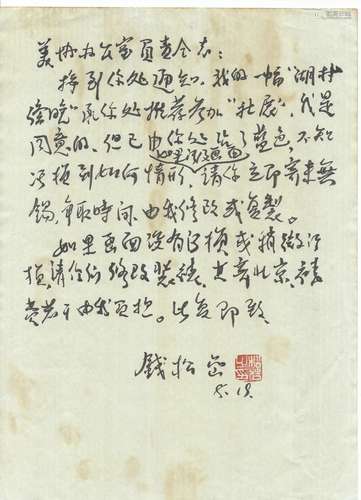 美协办公室负责同志：
接到你处通知，我的一幅"湖村
傍晚"承你处推荐参加"北展"，我是
同意的，但已由你处染了蓝色，不知
如果污损画面
污损到如何情形，请你立即寄来无
锡，争取时间，由我修改或复制。
如果画面没有污损或稍微污
损，请你们修改装裱，直寄北京，裱
费若干由我负担。此复即致
钱松嵒
5.19.